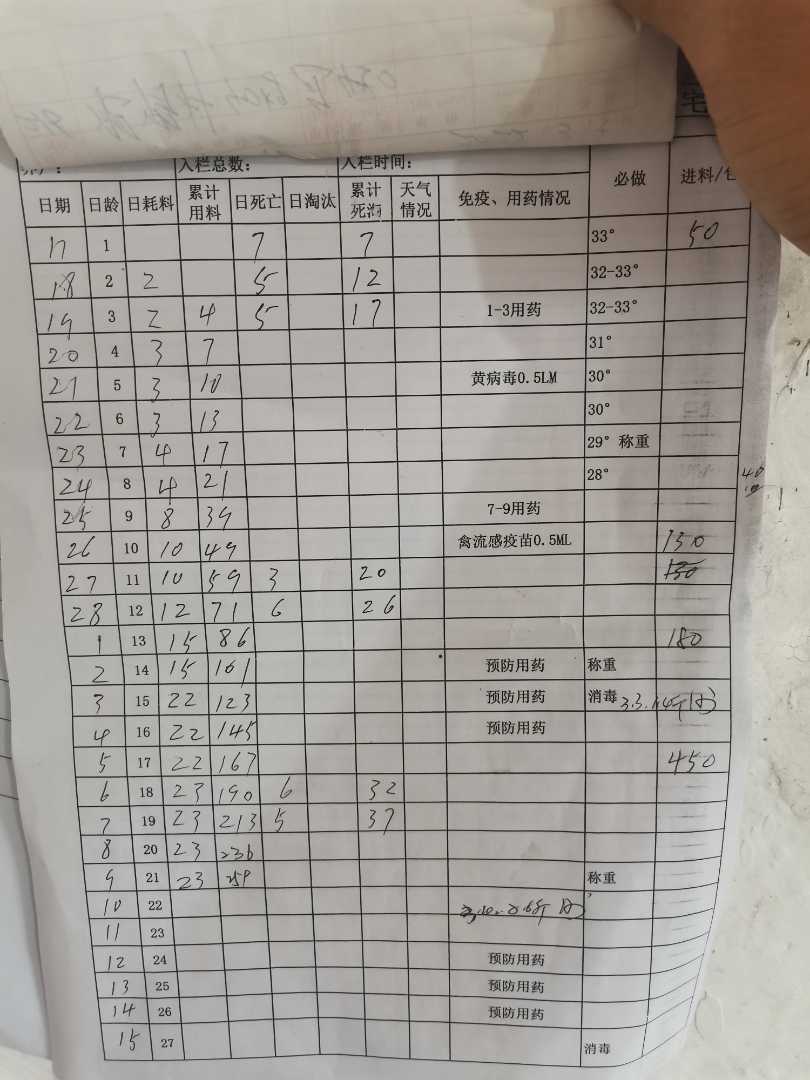 入栏总数： 入栏时间：
日期 日龄 日耗料 累计用料 日死亡 日淘汰 累计死淘 天气情况 免疫、用药情况 必做 进料/包
17 1 7 7 33° 50
18 2 2 5 12 32-33°
19 3 2 4 5 17 1-3用药 32-33°
20 4 3 7 31°
21 5 3 10 黄病毒0.5LM 30°
22 6 3 13 30°
23 7 4 17 29° 称重
24 8 4 21 28° 40
25 9 8 39 7-9用药
26 10 10 49 禽流感疫苗0.5ML 130
27 11 10 59 3 20 130
28 12 12 71 6 26
1 13 15 86 180
2 14 15 101 预防用药 称重
3 15 22 123 预防用药 消毒 3.3.
4 16 22 145 预防用药
5 17 22 167 450
6 18 23 190 6 32
7 19 23 213 5 37
8 20 23 236
9 21 23 259 称重
10 22
11 23
12 24 预防用药
13 25 预防用药
14 26 预防用药
15 27 消毒